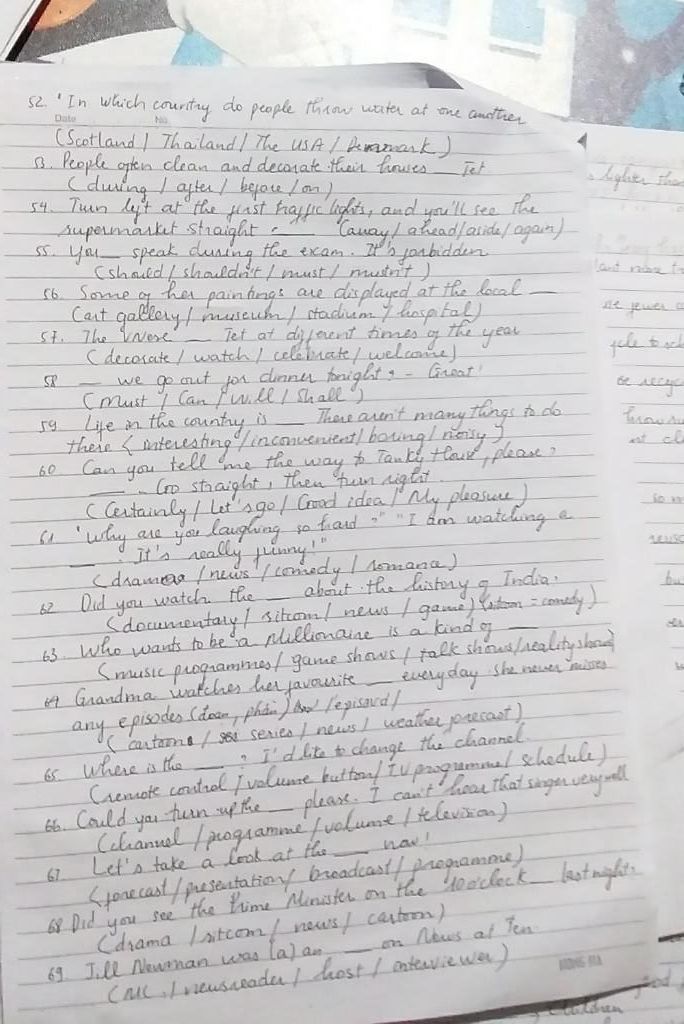 52. "In which country do people throw water at one another
Date No
(Scotland / Thailand / The USA / Denmark)
53. People often clean and decorate their houses __ Tet
(during / after / before / on)
54. Turn left at the first traffic lights, and you'll see the
supermarket straight __ (away / ahead / aside / again)
55. You __ speak during the exam. It's forbidden
(should / shouldn't / must / mustn't)
56. Some of her paintings are displayed at the local __
(art gallery / museum / stadium / hospital)
57. The __ Tet at different times of the year
(decorate / watch / celebrate / welcome)
58 __ we go out for dinner tonight? - Great!
(Must / Can / Will / Shall)
59 Life in the country is __ There aren't many things to do
there (interesting / inconvenient / boring / noisy)
60 Can you tell me the way to House, please?
__ - Go straight, then turn right.
(Certainly / Let's go / Good idea / My pleasure)
61 "Why are you laughing so hard?" "I am watching a
__. It's really funny!"
(drama / news / comedy / romana)
62 Did you watch the __ about the history of India.
(documentary / sitcom / news / game) (sitcom = comedy)
63 Who wants to be a Millionaire is a kind of __
(music programmes / game shows / talk shows / reality shows)
64 Grandma watches her favourite __ everyday she never misses
any episodes (đoạn, phần) /episoud/
(cartoons / series / news / weather forecast)
65. Where is the __? I'd like to change the channel.
(remote control / volume button / TV programme / schedule)
66. Could you turn up the __ please. I can't hear that singer very well
(channel / programme / volume / television)
67 Let's take a look at the __ now!
(forecast / presentation / broadcast / programme)
68 Did you see the Prime Minister on the 10 o'clock __ last night?
(drama / sitcom / news / cartoon)
69 Jill Newman was (a) an __ on News at Ten
(MC / newsreader / host / interviewer)
lighter than
Children